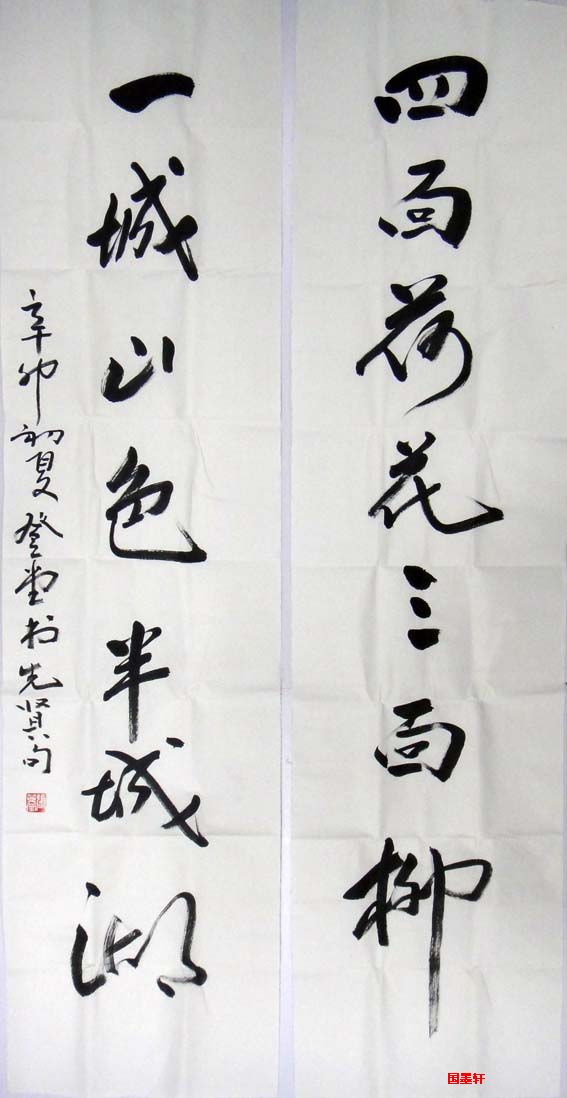 四面荷花三面柳
一城山色半城湖
辛卯初夏登堂书先贤句
国墨轩